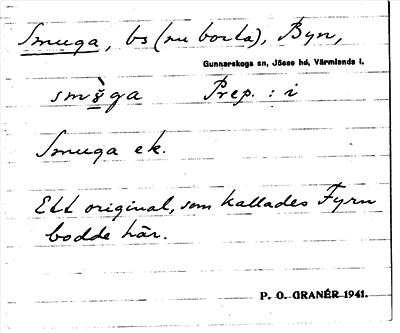 Smuga, bs (nu borta), Byn,
Gunnarskogs sn, Jösse hd, Värmlands l.
Prep. : i
Smuga ek.
Ett original, som kallades Fyrn
bodde här.
P. O. GRANÉR 1941.